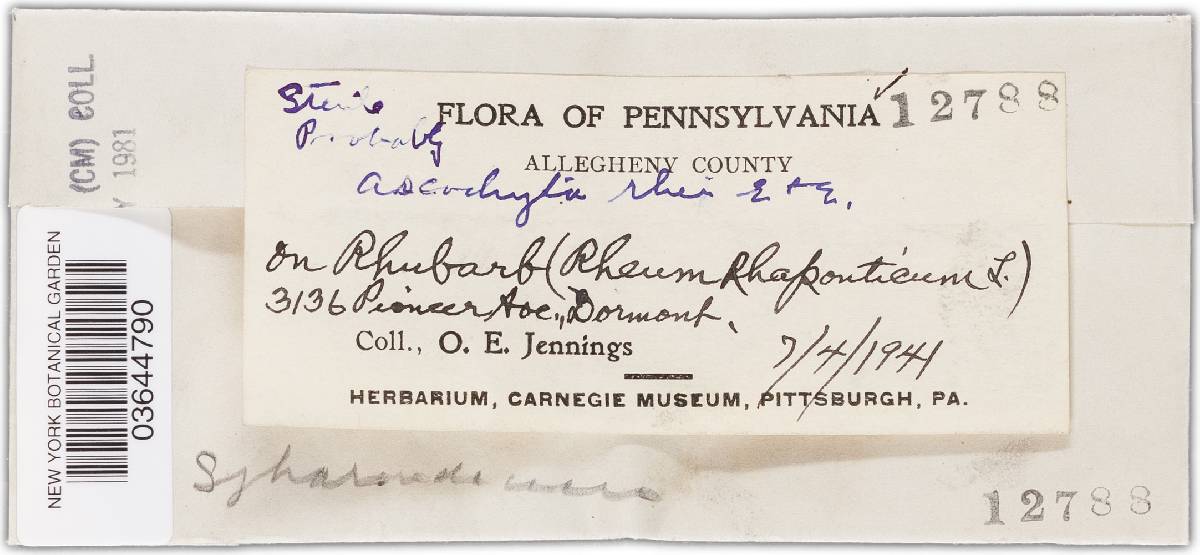 (CM) COLL.
Y 1981
Sterile
Probably
FLORA OF PENNSYLVANIA
12788
ALLEGHENY COUNTY
Ascochyta rhei E & E.
on Rhubarb (Rheum Rhaponticum L.)
3136 Pioneer Ave., Dormont.
Coll., O. E. Jennings
7/4/1941
HERBARIUM, CARNEGIE MUSEUM, PITTSBURGH, PA.
NEW YORK BOTANICAL GARDEN
03644790
12788